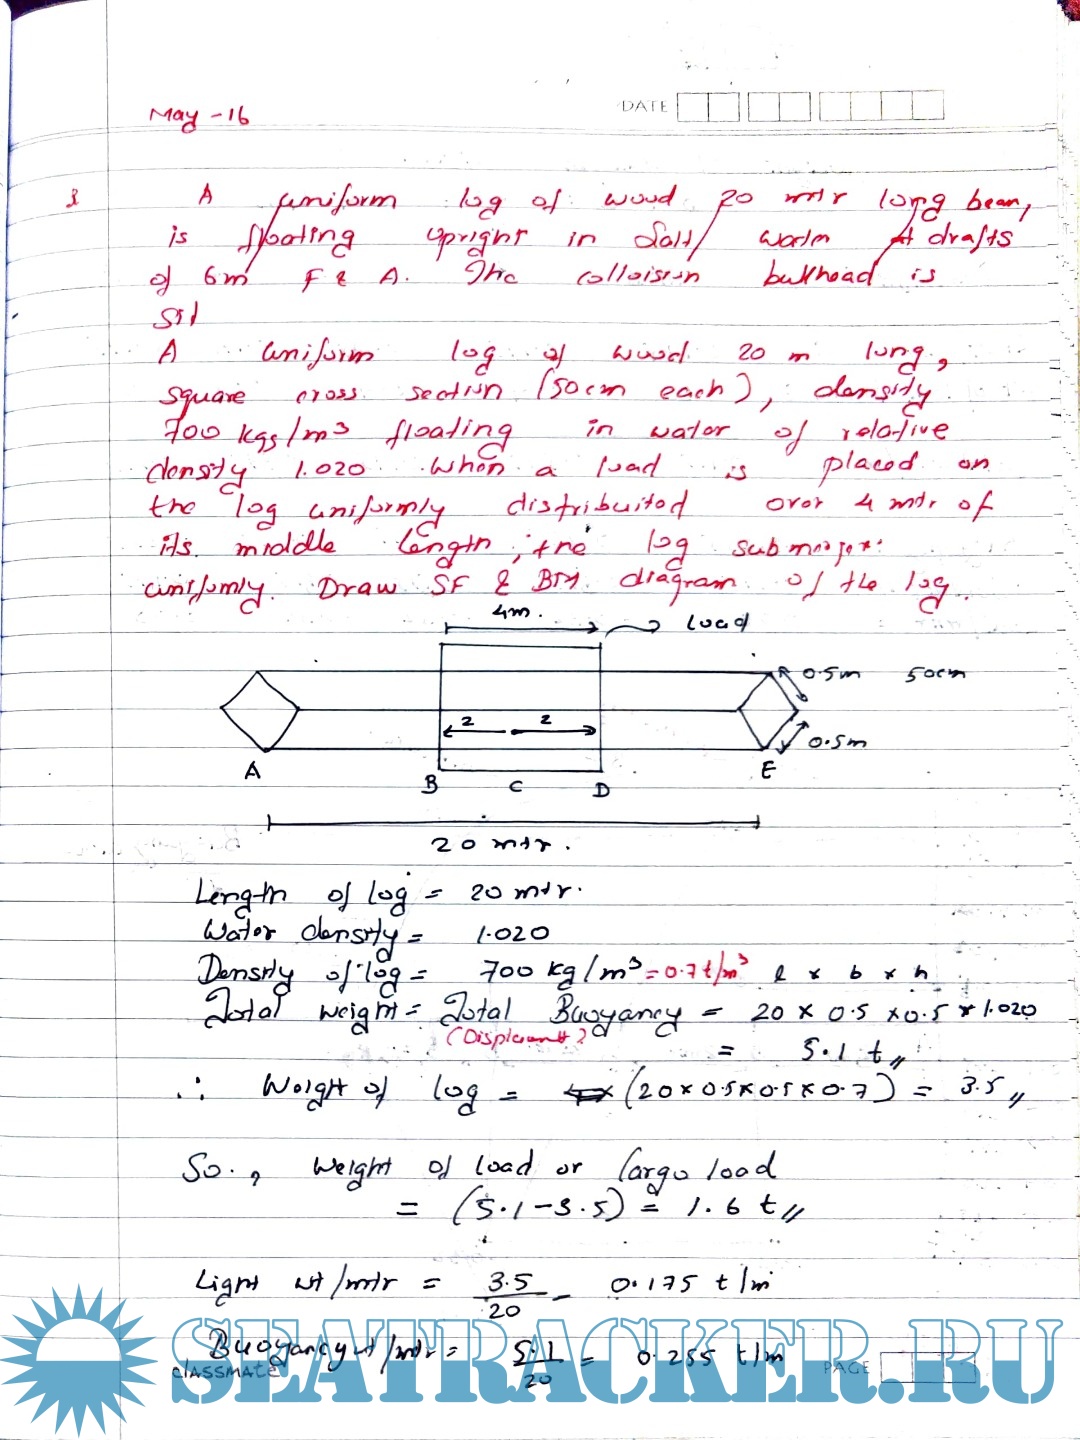 DATE
May - 16
A uniform log of wood 20 mtr long beam,
is floating upright in Salt water At drafts
of 6m F & A. The colloision bulkhead is
A uniform log of wood 20 m long,
square cross section (50cm each), density
700 kgs/m³ floating in water of relative
density 1.020 when a load is placed on
the log uniformly distribuited over 4 mtr of
its middle length, the log
unifomly. Draw SF & BM diagram of the log.
4m. load
0.5m 50cm
2 2
0.5m
A B C D E
20 mtr.
Length of log = 20 mtr.
Water density = 1.020
Density of log = 700 kg/m³ = 0.7 t/m³ l x b x h
Total weight = Total Buoyancy = 20 x 0.5 x 0.5 x 1.020
= 5.1 t,,
∴ Weight of log = (20 x 0.5 x 0.5 x 0.7) = 3.5,,
So., Weight of load or Cargo load
= (5.1 - 3.5) = 1.6 t,,
Light wt/mtr = 3.5/20 = 0.175 t/m
Buoyancy wt/mtr = 5.1/20 = 0.255 t/m
classmate PAGE
SEATRACKER.RU